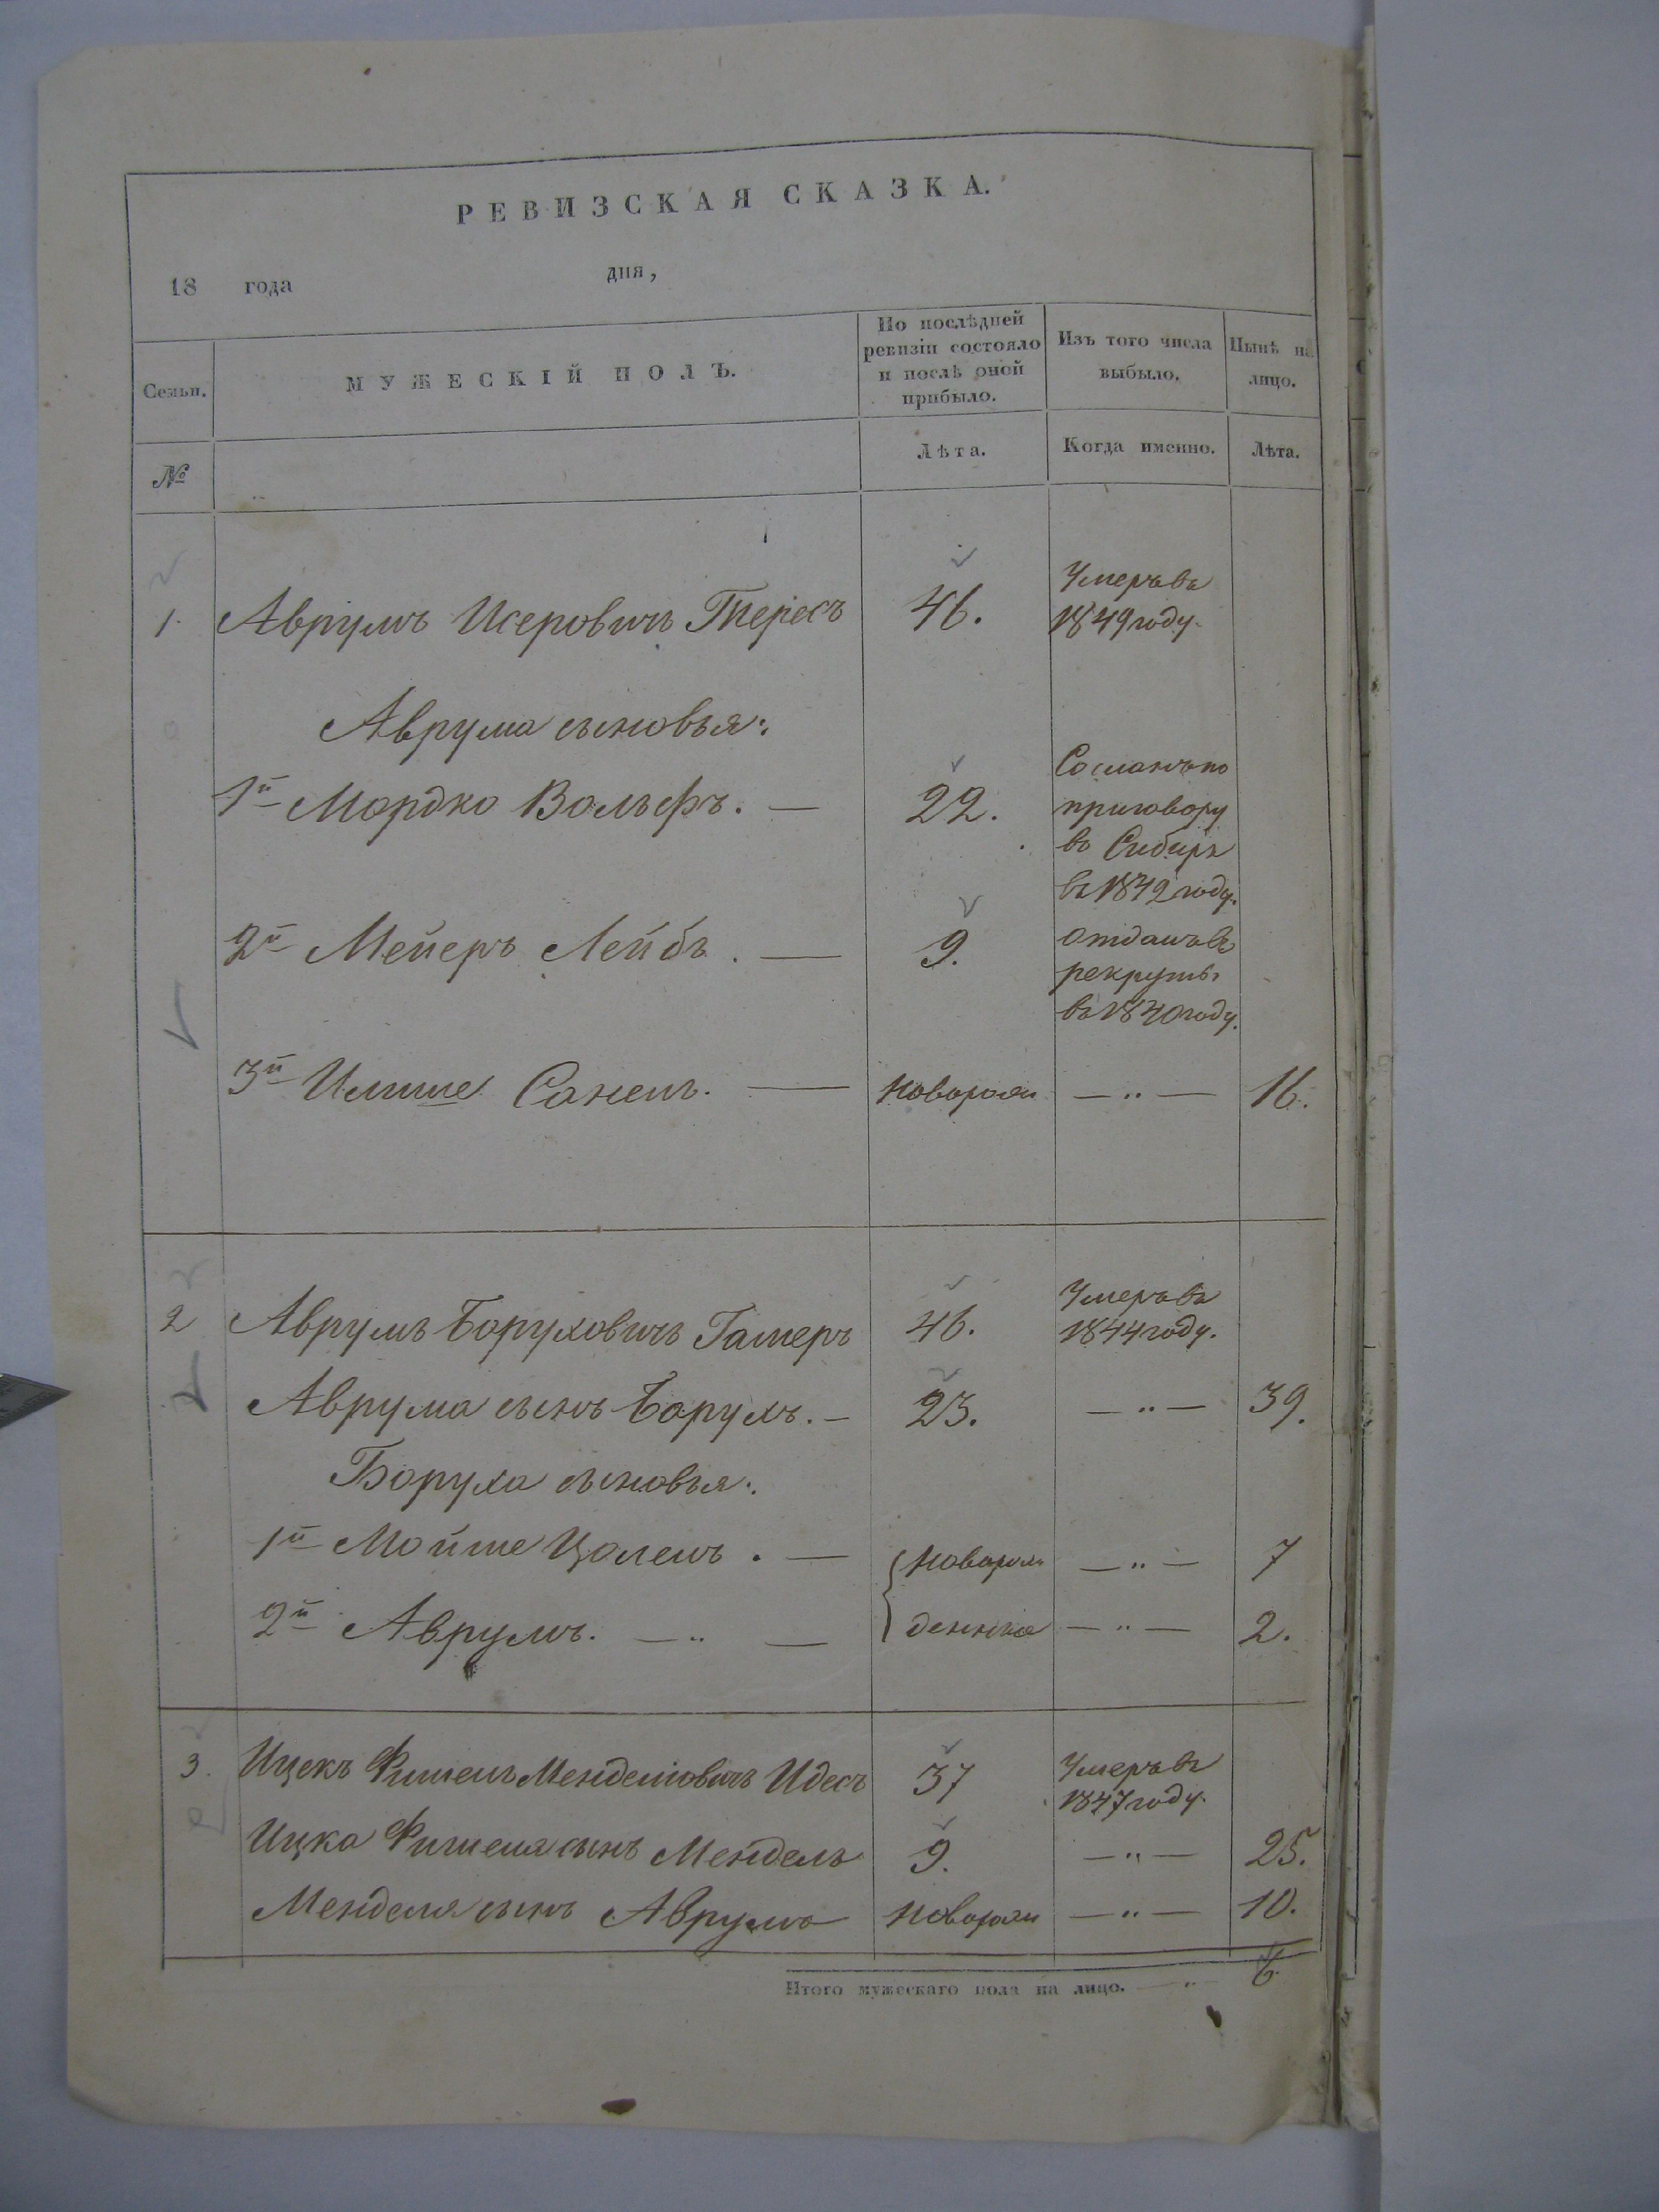 РЕВИЗСКАЯ СКАЗКА.
18 года дня,
Семьи. МУЖЕСКІЙ ПОЛЪ. По послѣдней ревизіи состояло и послѣ оной прибыло. Изъ того числа выбыло. Нынѣ на лицо.
№ Лѣта. Когда именно. Лѣта.
1. Аврумъ Исеровичъ Тересъ 46. Умеръ въ 1849 году.
Аврума сыновья:
1й Мордко Вольфъ. — 22. Сосланъ по приговору въ Сибирь въ 1842 году.
2й Мейеръ Лейбъ. — 9. Отданъ въ рекруты въ 1840 году.
3й Санель. — новорожд — " — 16.
2 Аврумъ Боруховичъ Гамеръ 46. Умеръ въ 1844 году.
Аврума сынъ Борухъ. — 23. — " — 39.
Боруха сыновья:
1й Мойше Цалель. — новорож — " — 7
2й Аврумъ. — " — денные — " — 2.
3. Ицекъ Фишель Менделовичъ Идесъ 37 Умеръ въ 1847 году.
Ицка Фишеля сынъ Мендель 9. — " — 25.
Менделя сынъ Аврумъ новорожд — " — 10.
Итого мужескаго пола на лицо. — " — 6.